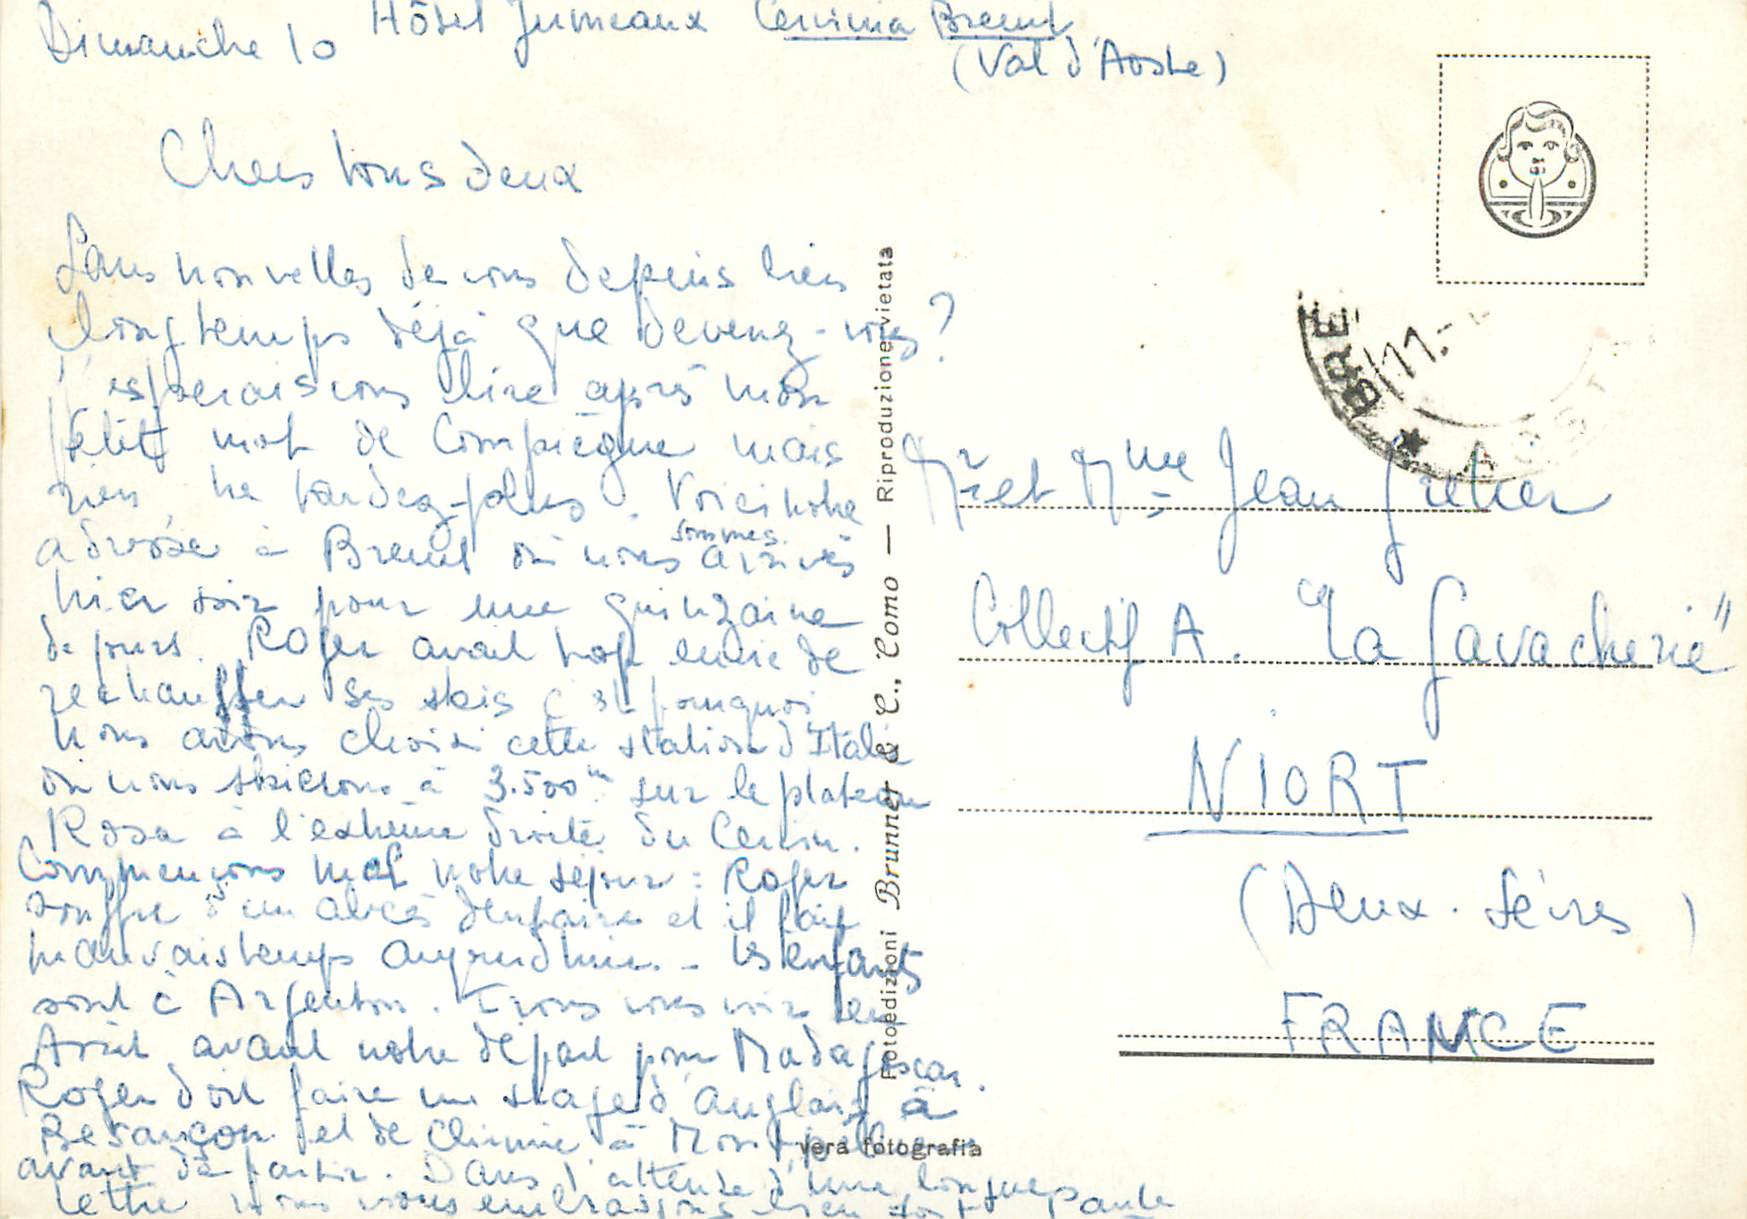 Dimanche 10 Hôtel Jumeaux Cervinia Breuil
(Val d'Aoste)
Chers tous deux
Sans nouvelles de vous depuis bien
longtemps déjà que devenez-vous ?
J'esperais vous lire après mon
petit mot de Compiègne mais
rien, ne tardez plus. Voici notre
adresse à Breuil où nous sommes arrivés
hier soir pour une quinzaine
de jours. Roger avait trop envie de
rechauffer ses skis c'est pourquoi
nous avons choisi cette station d'Italie
où nous skierons à 3.500 m sur le plateau
Rosa à l'extrême droite du Cervin.
Commençons mal notre séjour : Roger
souffre d'un abcès dentaire et il fait
mauvais temps aujourd'hui. - les enfants
sont à Argenton. Irons vous voir en
Avril avant notre départ pour Madagascar.
Roger doit faire un stage d'Anglais à
Besançon et de Chimie à Montpellier
avant de partir. Dans l'attente d'une longue
lettre nous vous embrassons bien fort
Fotoedizioni Brunner & C., Como — Riproduzione vietata
vera fotografia
BRE
11.
AOST
Mr et Mme Jean
Collectif A. "La Gavacherie"
NIORT
(Deux-Sèvres)
FRANCE